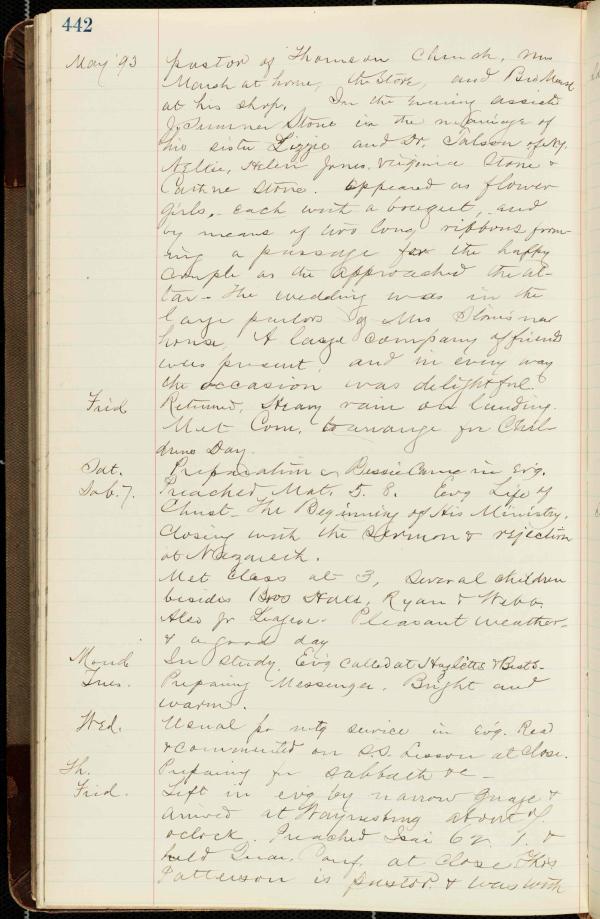 442
May '93 pastor of Thomson Church, Mrs
March at home, the Store, and Bro Morse
at his shop. In the evening assist
J. Sumner Stone in the marriage of
his sister Lizzie and Dr. of N.Y.
Nellie, Helen Jones, Virginia Stone &
Stone. appeared as flower
girls, each with a bouquet, and
by means of two long ribbons form-
ing a passage for the happy
couple as the approached the al-
tar. The wedding was in the
large parlors of Mrs Stone's new
house. A large company of friends
were present, and in every way
the occasion was delightful.
Frid. Returned, Heavy rain on landing.
Met Com. to arrange for Chil-
drens Day.
Sat. Preparation & Bessie came in ev'g.
Sab. 7. Preached Mat. 5. 8. Evg Life of
Christ - The Beginning of His Ministry.
Closing with the Sermon & rejection
at Nazareth.
Met Class at 3, Several children
besides Bros Hall, Ryan & Webb.
Also Jr League. Pleasant weather-
& a good day
Mond In study. Ev'g called at &
Tues. Preparing Messenger. Bright and
warm.
Wed. Usual pr mtg service in ev'g. Read
& commented on S.S. Lesson at close.
Th. Preparing for Sabbath &c -
Frid. Left in evg by narrow guage &
arrived at Waynesburg about
oclock. Preached Isai 62. 1. &
held Quar. Conf. at close Thos
Patterson is pastor & was with